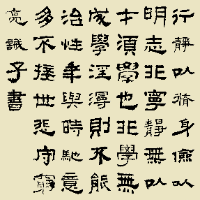 行靜以脩身儉以
明志非寧靜無以
才須學也非學無
成學淫則不能
治性年與時馳意
多不接世悲守窮
亮誡子書